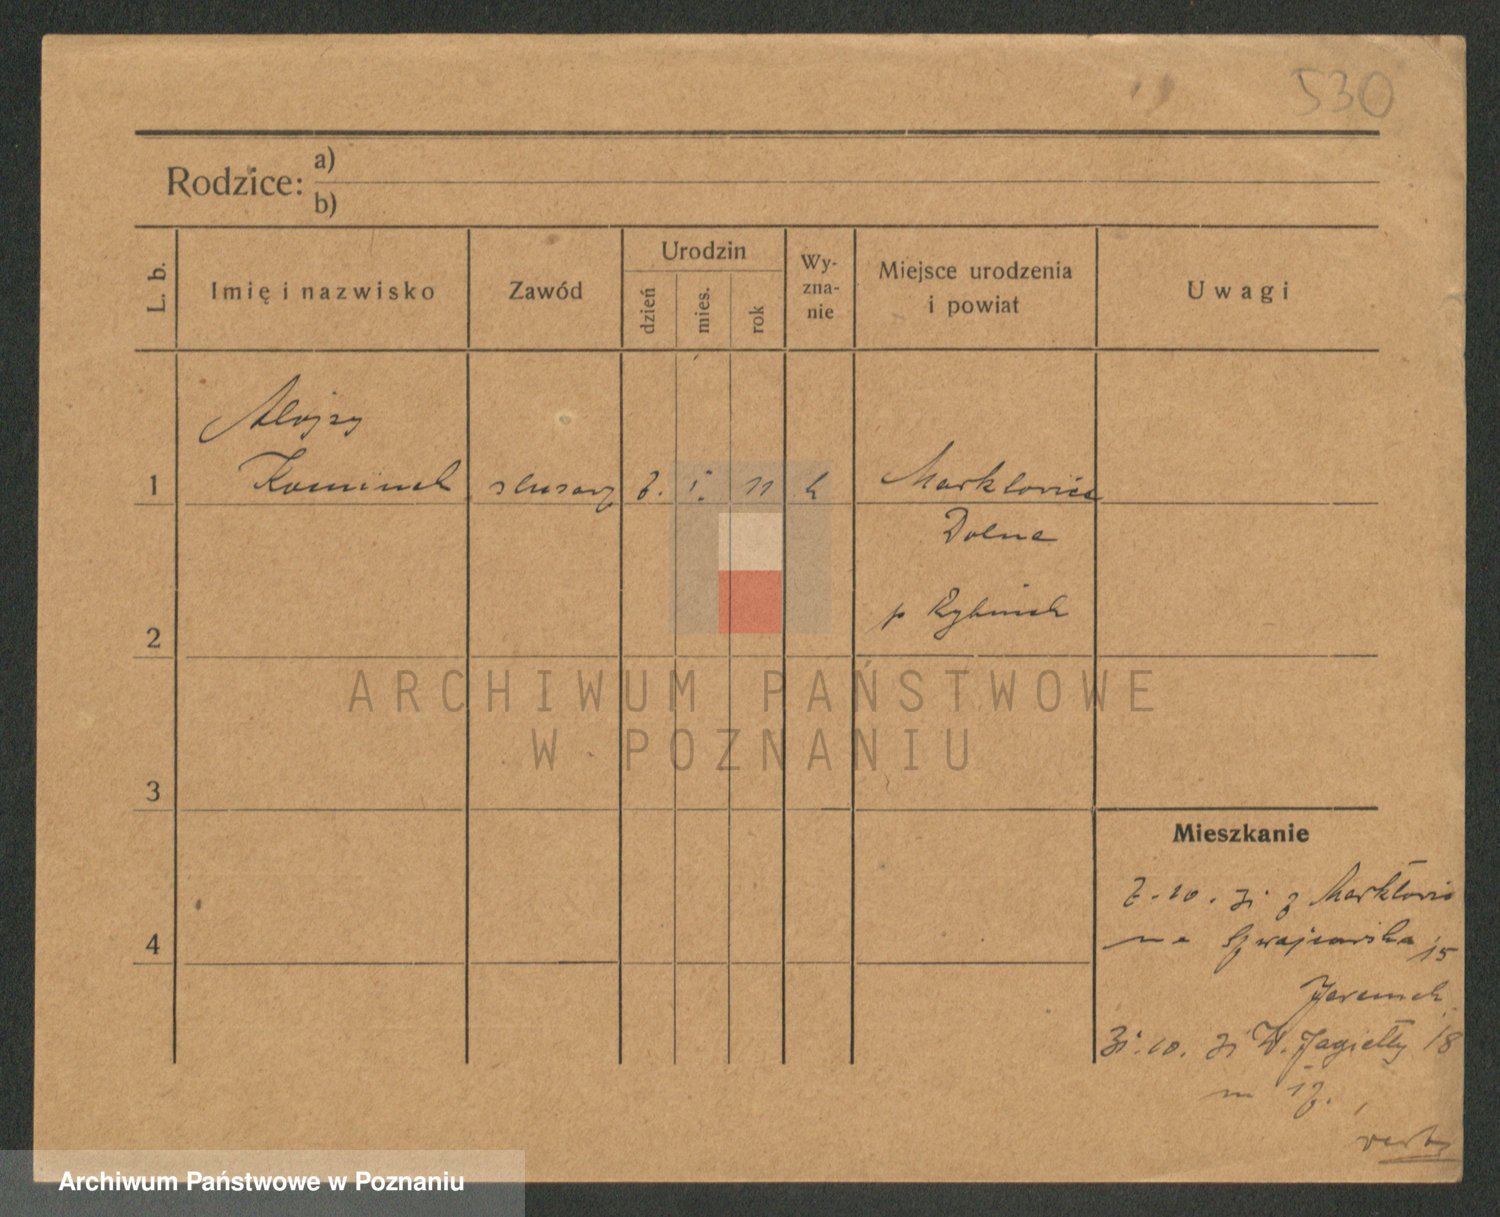 530
Rodzice: a)
b)
L. b. Imię i nazwisko Zawód Urodzin dzień mies. rok Wyznanie Miejsce urodzenia i powiat Uwagi
Alojzy
1 Kominek slusarz 7. i. 11 k Marklovice
Dolne
2 p Rybnik
ARCHIWUM PAŃSTWOWE
W POZNANIU
3
Mieszkanie
7.10. 31 z Markłovic
4 na 15
31.10. 31 W. Jagiełły 18
m 17.
Archiwum Państwowe w Poznaniu